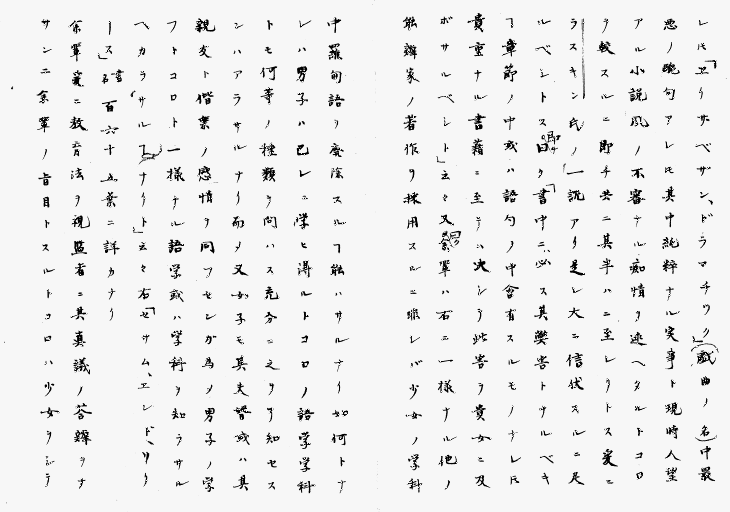 レ𪜈「ヱリザベザン、ドラマチック」(戯曲ノ名)中最
悪ノ晩句アレ𪜈其中純粋ナル実事ト現時人望
アル小説風ノ不審ナル痴情ヲ述ヘタルトコロ
ヲ較スルニ即チ共ニ其半ハニ至レリトス爰ニ
ラスキン氏ノ一説アリ是レ大ニ信伏スルニ足
ルベシトス即曰ク「書中ニハ必ス其弊害トナルベキ
ヿ章節ノ中或ハ語句ノ中會有スルモノナレ𪜈
貴重ナル書籍ニ至テハ决シテ此害ヲ貴女ニ及
ボサルベシト」云々又曰余輩ハ右ニ一様ナル他ノ
能辯家ノ著作ヲ採用スルニ非レバ少女ノ学科
中羅甸語ヲ廃除スルヿ能ハサルナリ如何トナ
レハ男子ハ已レニ学ヒ得ルトコロノ語学学科
トモ何等ノ種類ヲ問ハス充分ニ之ヲ知セス
ンハアラサルナリ而メ又女子モ其夫壻或ハ其
親友ト偕楽ノ感情ヲ同フセンガ為メ男子ノ学
フトコロト一様ナル語学或ハ学科ヲ知ラサル
ヘカラサルヿナリト」云々右ハ「セサム、エンド、リリ
ース」書名百六十五葉ニ詳カナリ
余輩爰ニ教育法ヲ視監者ニ其真議ノ答辯ヲナ
サンニ余輩ノ盲目トスルトコロハ少女ヲシテ